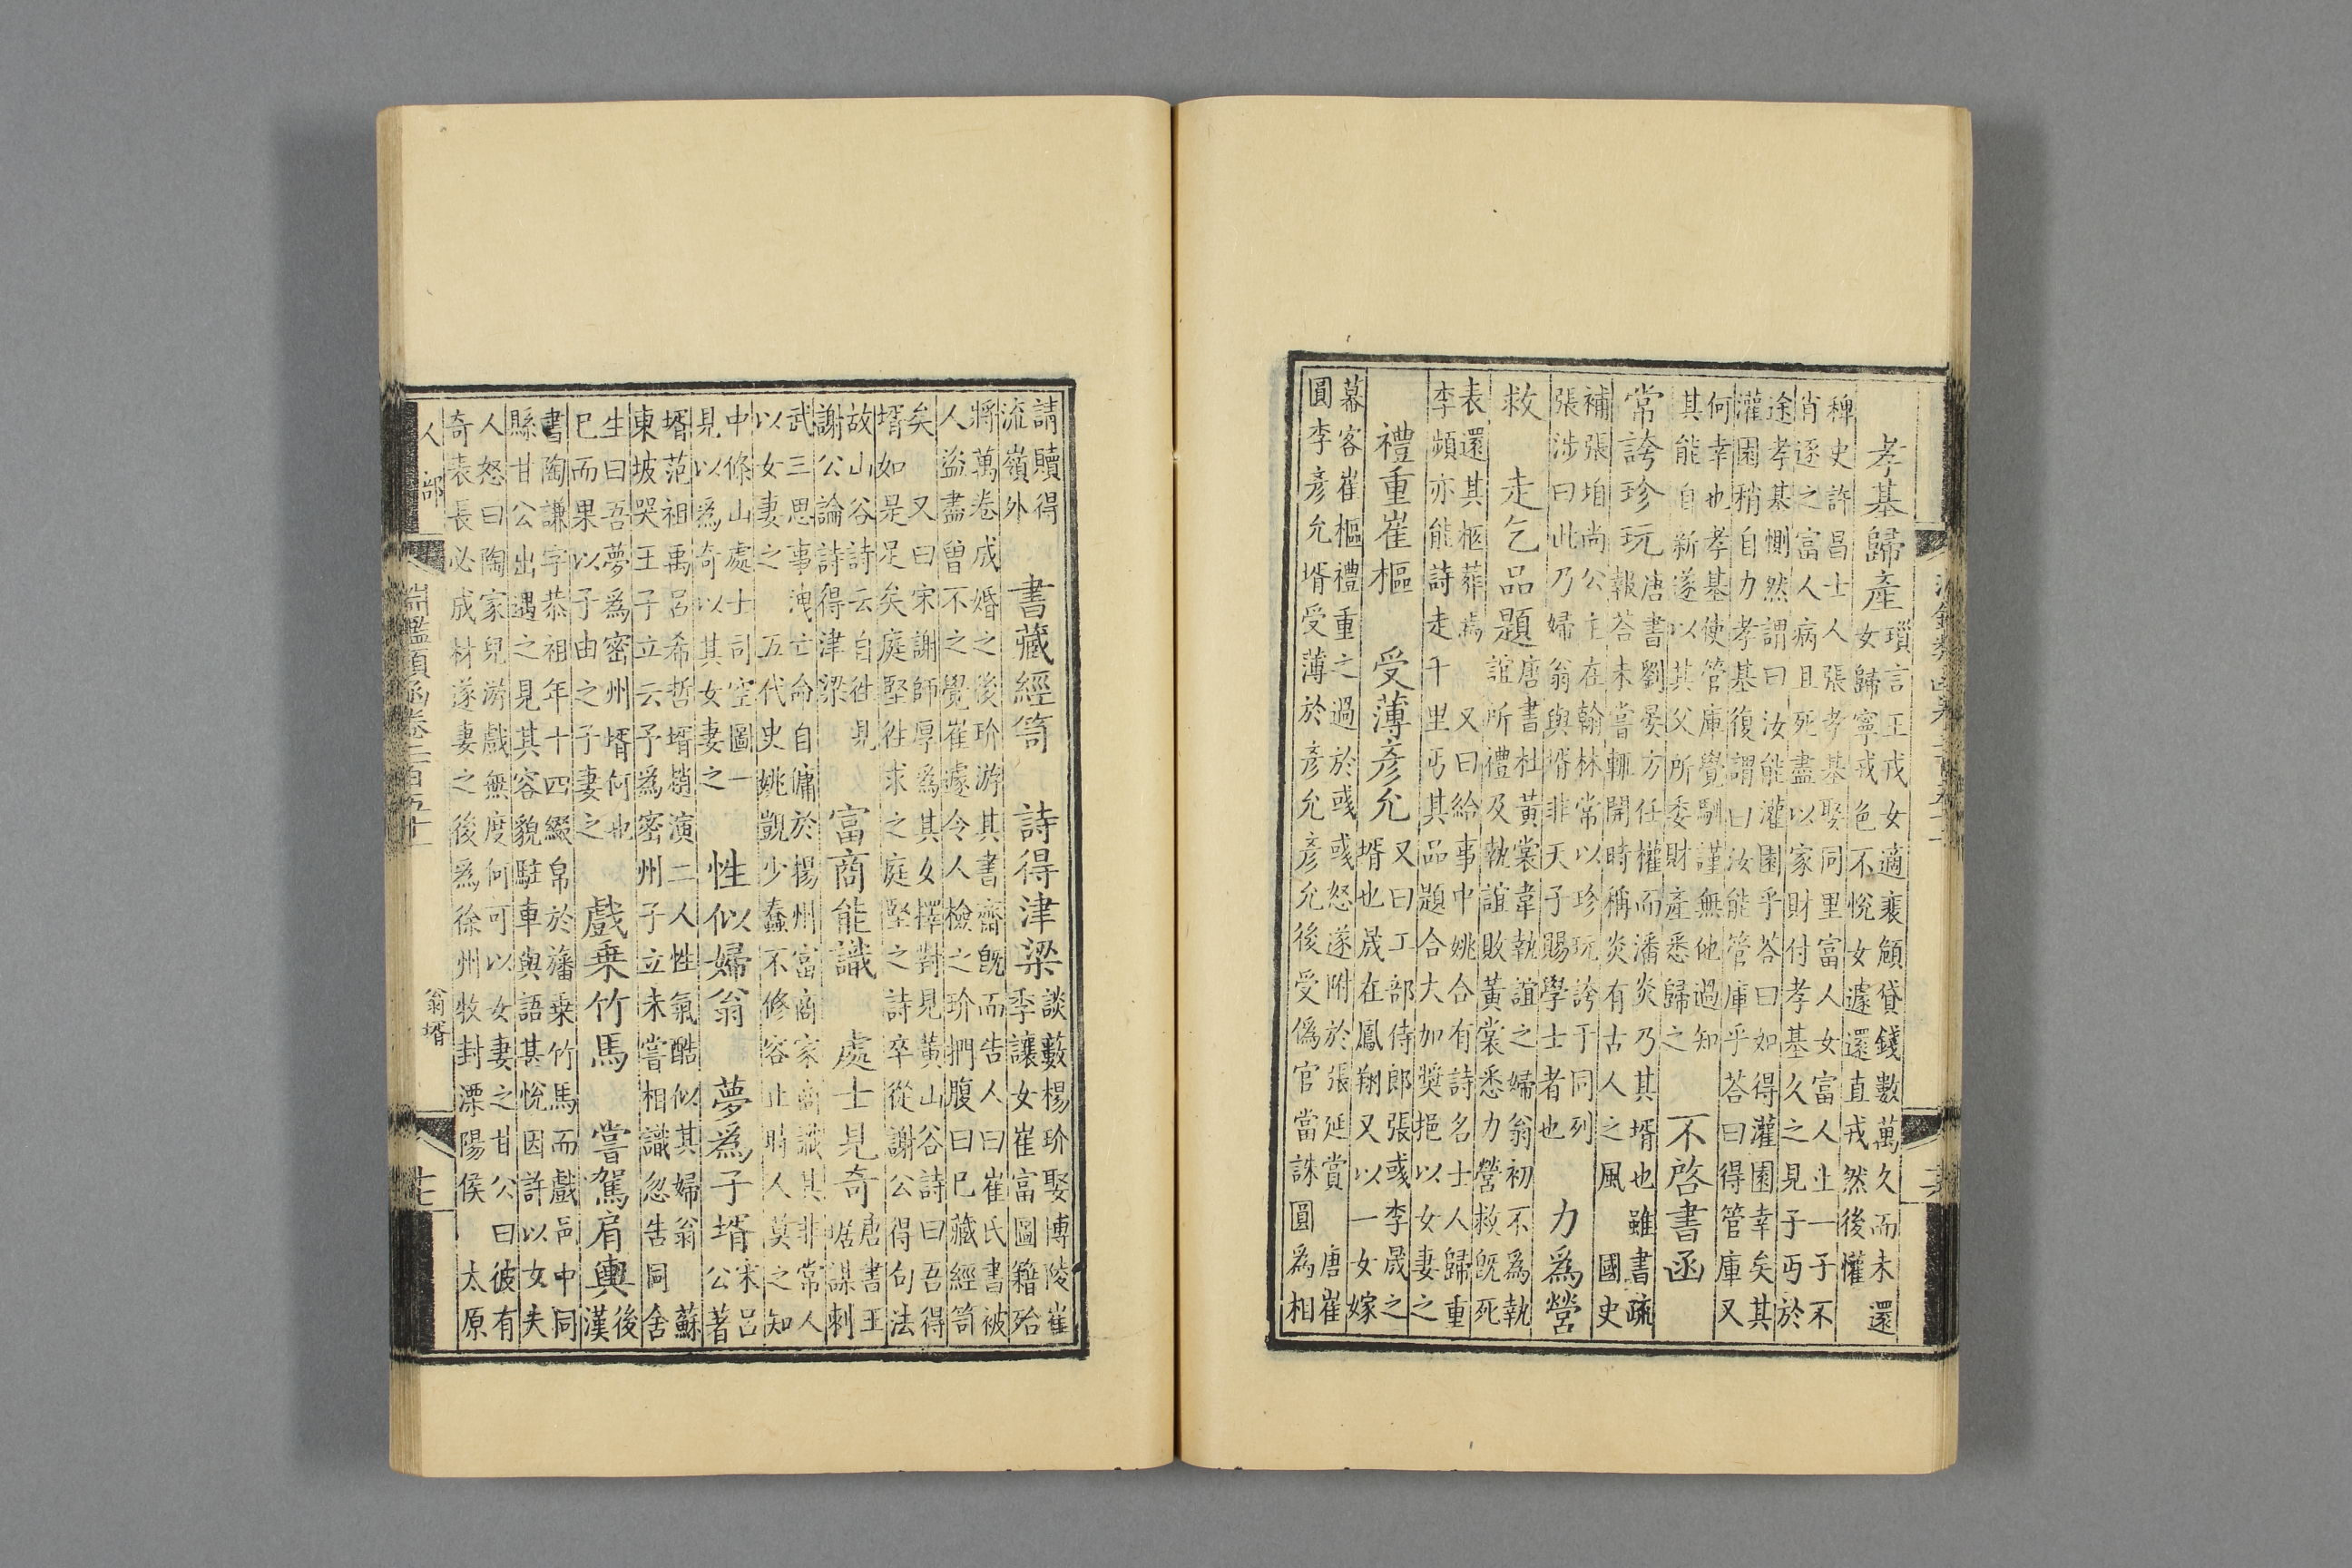 孝基歸產
瑣言王戎女適裴頠貸錢數萬久而未還
女歸寧戎色不悅女遽還直戎然後懽
稗史許昌士人張孝基娶同里富人女富人止一子不
肖逐之富人病且死盡以家財付孝基久之見子丐於
途孝基惻然謂曰汝能灌園乎荅曰如得灌園幸矣其
灌園稍自力孝基復謂曰汝能管庫乎荅曰得管庫又
何幸也孝基使管庫覺馴謹無他過知
其能自新遂以其父所委財產悉歸之
不啓書函
常誇珍玩
唐書劉晏方任權而潘炎乃其壻也雖書疏
報荅未嘗輒開時稱炎有古人之風 國史
補張垍尚公主在翰林常以珍玩誇于同列
張涉曰此乃婦翁與壻非天子賜學士者也
力爲營
救 走乞品題
唐書杜黃裳韋執誼之婦翁初不爲執
誼所禮及執誼敗黃裳悉力營救旣死
表還其柩葬焉 又曰給事中姚合有詩名士人歸重
李頻亦能詩走千里丐其品題合大加獎挹以女妻之
禮重崔樞 受薄彥允
又曰工部侍郎張彧李晟之
壻也晟在鳳翔又以一女嫁
幕客崔樞禮重之過於彧彧怒遂附於張延賞 唐崔
圓李彥允壻受薄於彥允彥允後受僞官當誅圓爲相
請贖得
流嶺外
書藏經笥 詩得津梁
談藪楊玠娶博陵崔
季讓女崔富圖籍殆
將萬卷成婚之後玠游其書齋旣而告人曰崔氏書被
人盜盡曾不之覺崔遽令人檢之玠捫腹曰已藏經笥
矣 又曰宋謝師厚爲其女擇對見黃山谷詩曰吾得
壻如是足矣庭堅徃求之庭堅之詩卒從謝公得句法
故山谷詩云自徃見
謝公論詩得津梁
富商能識 處士見奇
唐書王
琚謀刺
武三思事洩亡命自傭於揚州富商家商識其非常人
以女妻之 五代史姚顗少蠢不修容止時人莫之知
中條山處士司空圖一
見以爲奇以其女妻之
性似婦翁 夢爲子壻
宋呂
公著
壻范祖禹呂希哲壻趙演二人性氣酷似其婦翁 蘇
東坡哭王子立云予爲密州子立未嘗相識忽告同舍
生曰吾夢爲密州壻何也
已而果以子由之子妻之
戲乘竹馬 嘗駕肩輿
後
漢
書陶謙字恭祖年十四綴帛於旛乘竹馬而戲邑中同
縣甘公出遇之見其容貌駐車與語甚悅因許以女夫
人怒曰陶家兒游戲無度何可以女妻之甘公曰彼有
奇表長必成材遂妻之後爲徐州牧封溧陽侯 太原
人部
淵鑑類函卷二百五十一
翁壻
十七